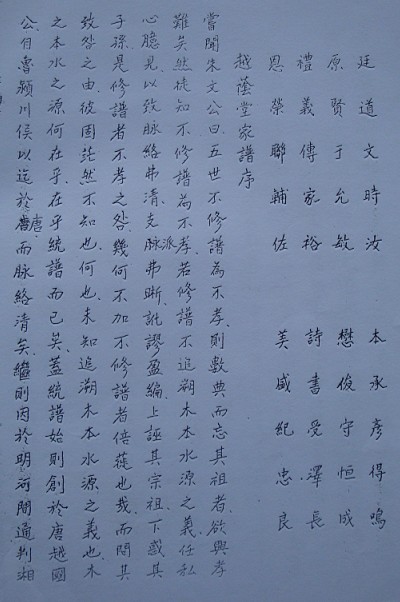 廷道文時汝　本承彥得鳴
原賢于允敏　懋俊守恒成
禮義傳家裕　詩書受澤長
恩榮聯輔佐　美盛紀忠良
越蔭堂家譜序
嘗聞朱文公曰、五世不修譜為不孝、則數典而忘其祖者、欲興孝
難矣、然徒知不修譜為不孝、若修譜不追溯木本水源之義、任私
心臆見、以致脉絡弗清、支脉派弗晰、訛謬盈編、上誣其宗祖、下惑其
子孫、是修譜者不孝之咎、幾何不加不修譜者倍蓰也哉、而問其
致咎之由、彼固茫然不知也、何也、未知追溯木本水源之義也、木
之本水之源何在乎、在乎統譜而已矣、蓋統譜始則創於唐越國
公、自魯潁川侯以迄於唐、而脉絡清矣、繼則因於明河間通判湘